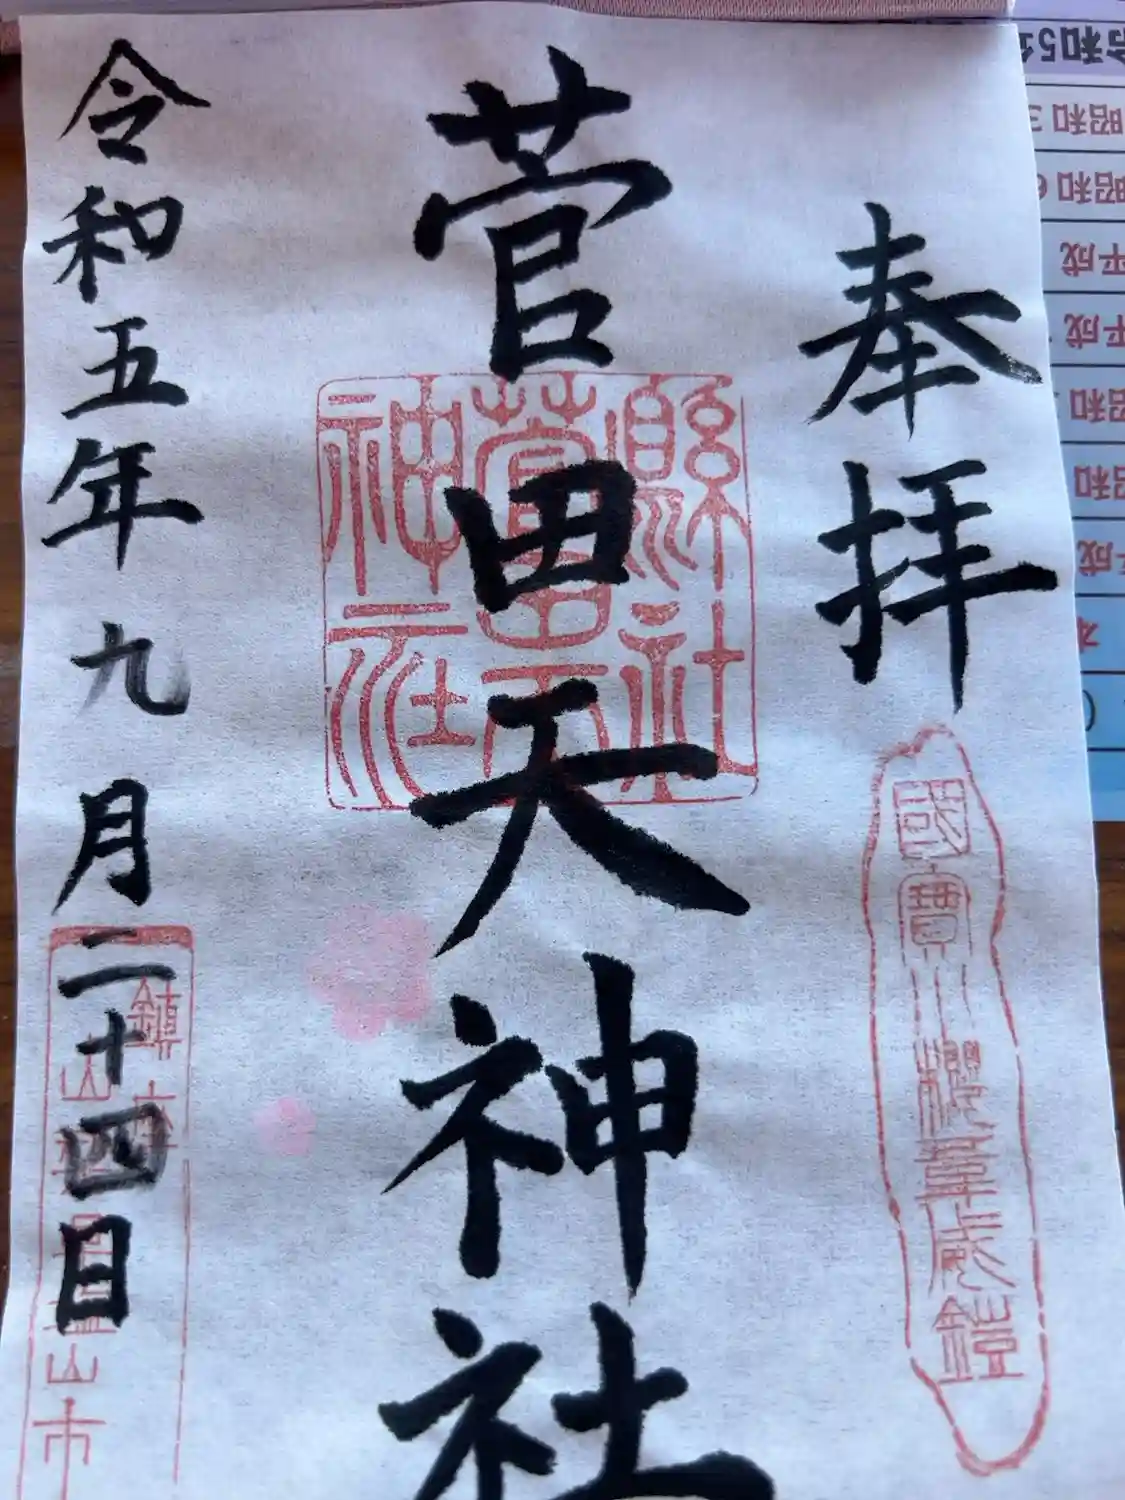 奉拝
國寶小櫻韋威鎧
菅田天神社
縣社
菅田天
神社
令和五年九月二十四日
鎮座
塩山市
令和5年
昭和3
昭和6
平成
平成
昭和
昭和
平成